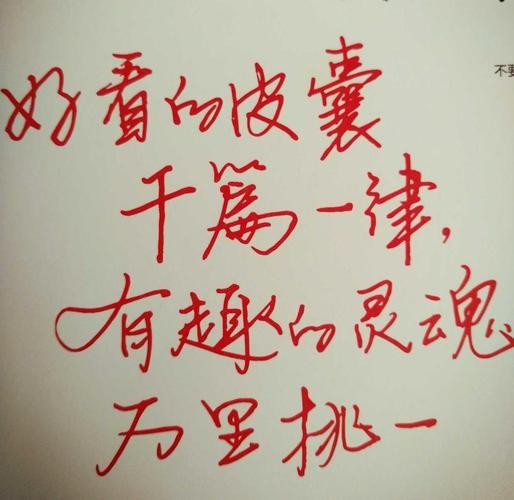 不要
好看的皮囊
千篇一律,
有趣的灵魂
万里挑一